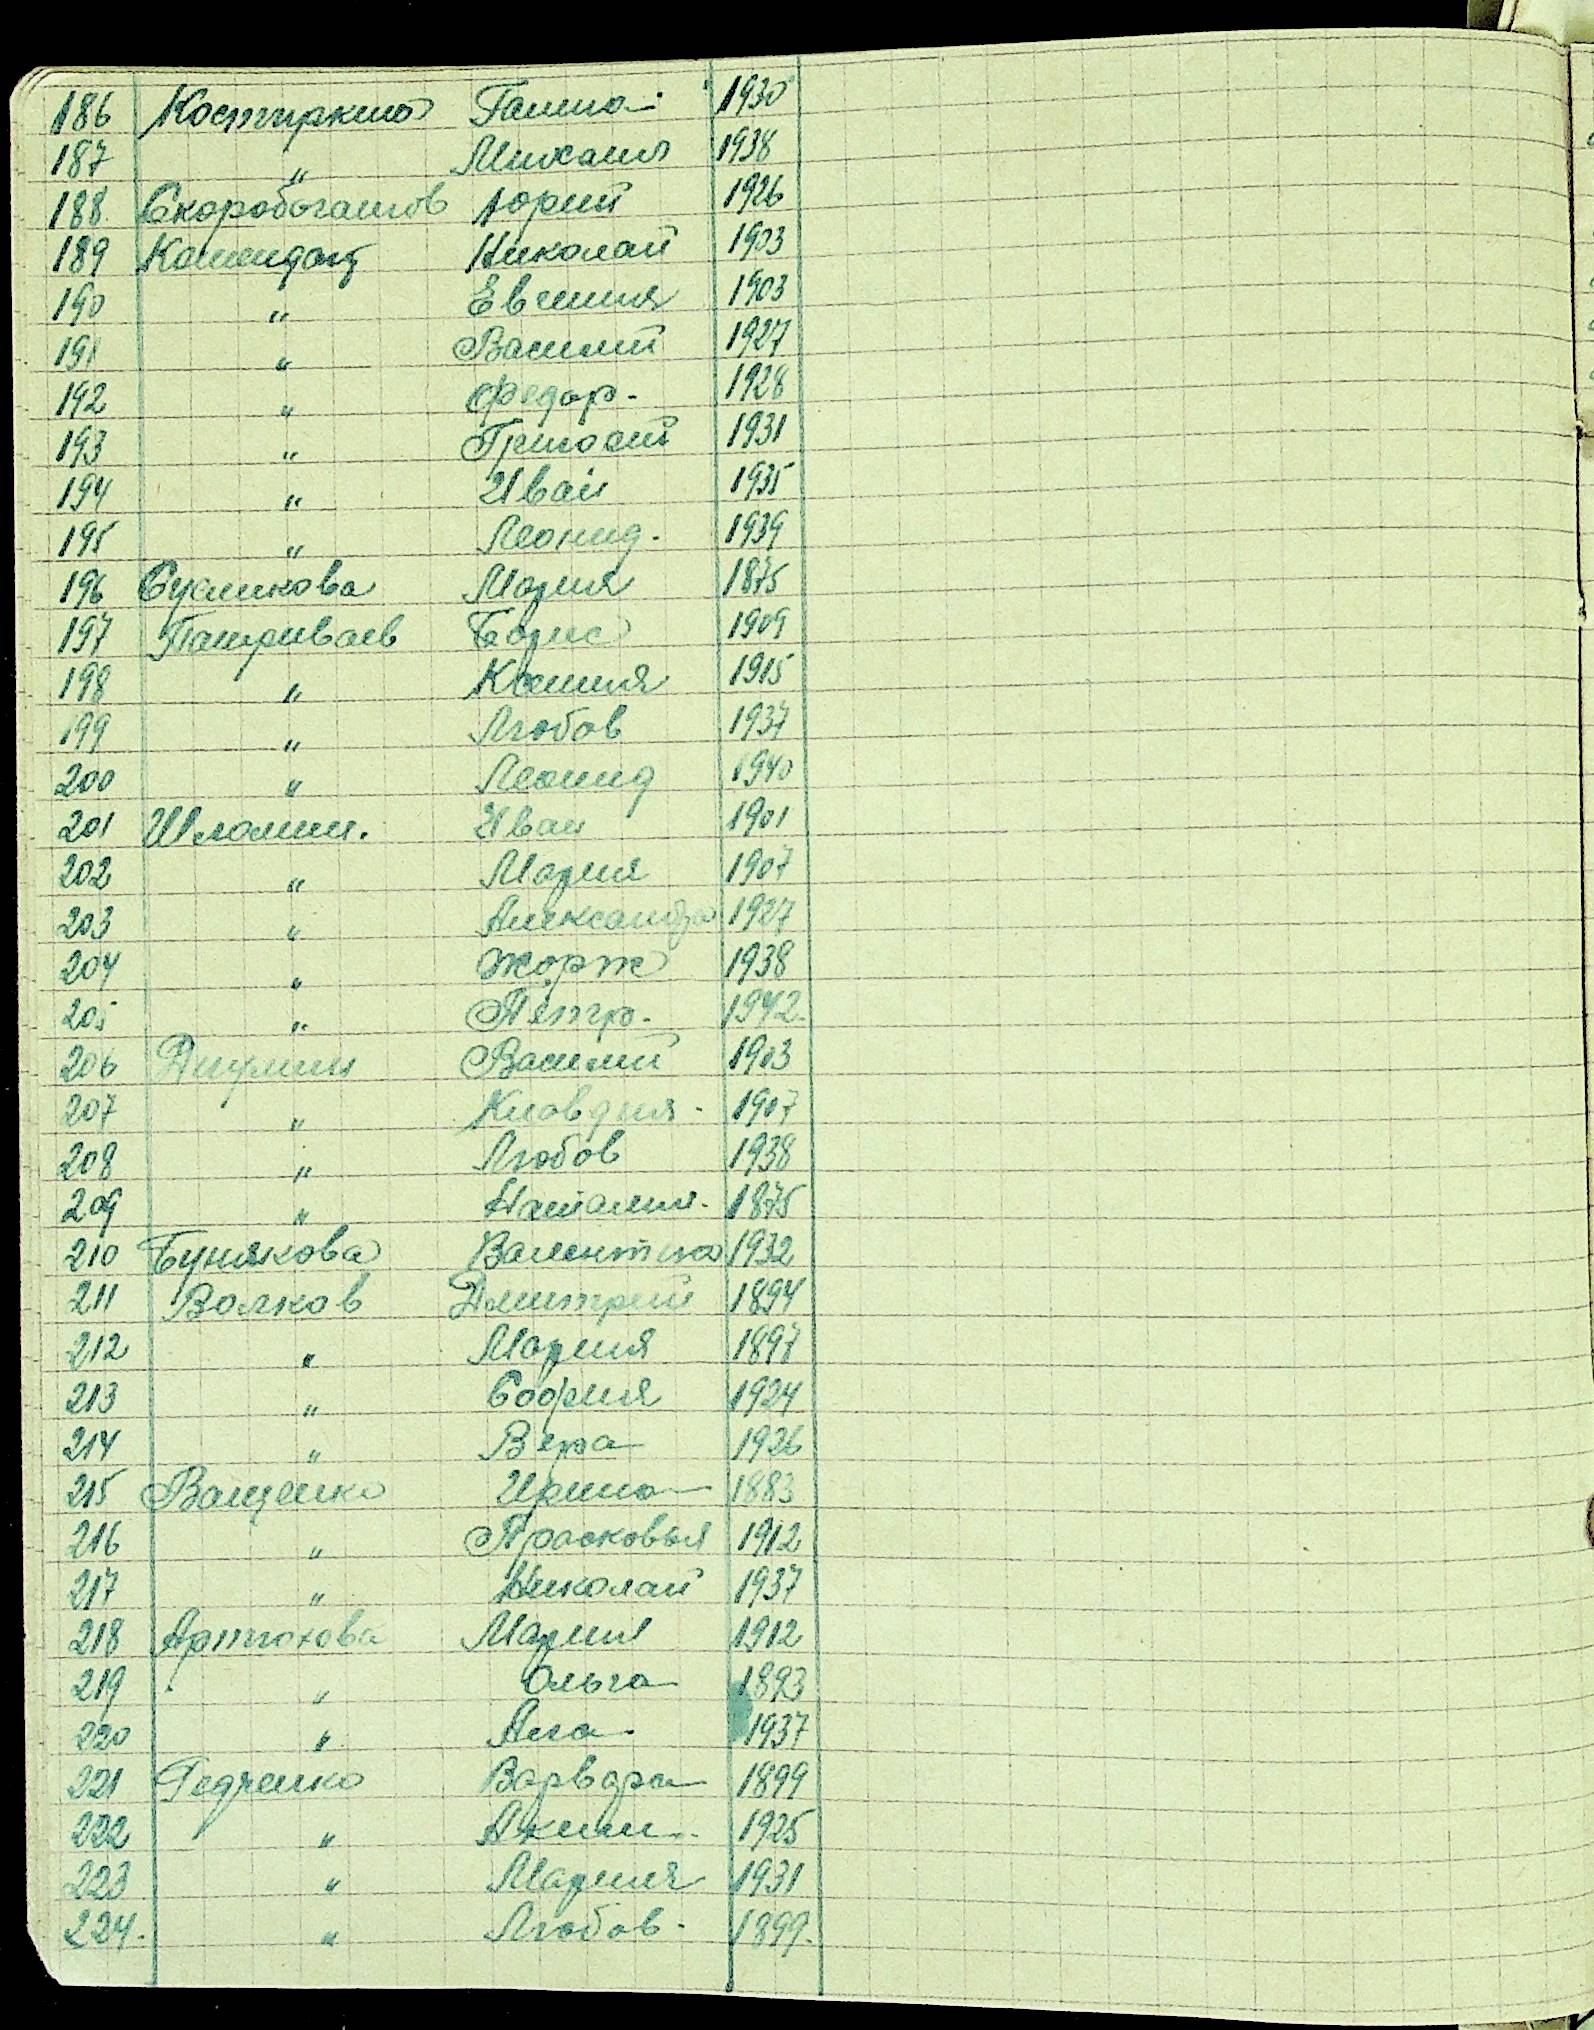 186 Костыркина Галина 1930
187 " Михаил 1938
188 Скоробогатов Юрий 1926
189 Николай 1903
190 " Евгения 1903
191 " Василий 1927
192 " Федор. 1928
193 " Григорий 1931
194 " Иван 1935
195 " Леонид. 1939
196 Сусликова Мария 1875
197 Патриваев Борис 1909
198 " Ксения 1915
199 " Любов 1937
200 " Леонид 1940
201 Шламин. Иван 1901
202 " Мария 1907
203 " Александра 1927
204 " Жорж 1938
205 " Пётр. 1942.
206 Василий 1903
207 " Клавдия. 1907
208 " Любов 1938
209 " Наталия. 1875
210 Бунякова Валентина 1932
211 Волков Дмитрий 1894
212 " Мария 1897
213 " София 1924
214 " Вера 1926
215 Ващенко Ирина 1883
216 " Прасковья 1912
217 " Николай 1937
218 Артюхова Мария 1912
219 " Ольга 1893
220 " 1937
221 Федченко Варвара 1899
222 " Аким. 1925
223 " Мария 1931
224. " Любов. 1899.